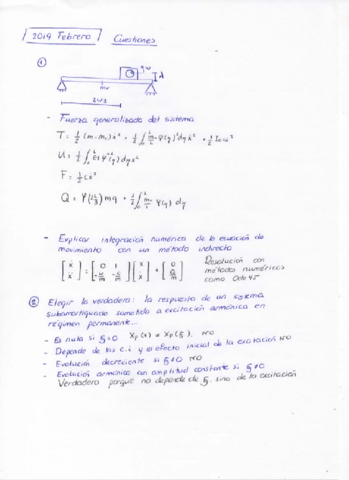 2019 Febrero Cuestiones
①
gw
λ
mv
2L/3
- Fuerza generalizada del sistema
T = 1/2 (m-mc)ẋ² + 1/2 ∫ m/L φ(y)² dy ẋ² + 1/2 I₀ ẋ²
U = 1/2 ∫ EI φ''(y) dy x²
F = 1/2 c ẋ²
Q = φ(2L/3) mg + 1/2 ∫ m/L φ(y) dy
- Explicar integración numérica de la ecuación de
movimiento con un método indirecto
Resolución con
métodos numéricos
como Ode 45
② Elegir la verdadera: la respuesta de un sistema
subamortiguado sometido a excitación armónica en
régimen permanente...
- Es nula si ξ=0 Xp(x) = Xp(ξ). NO
- Depende de las c.i y el efecto inicial de la excitación NO
- Evolución decreciente si ξ≠0 NO
- Evolución armónica con amplitud constante si ξ≠0
Verdadero porque no depende de ξ, sino de la excitación